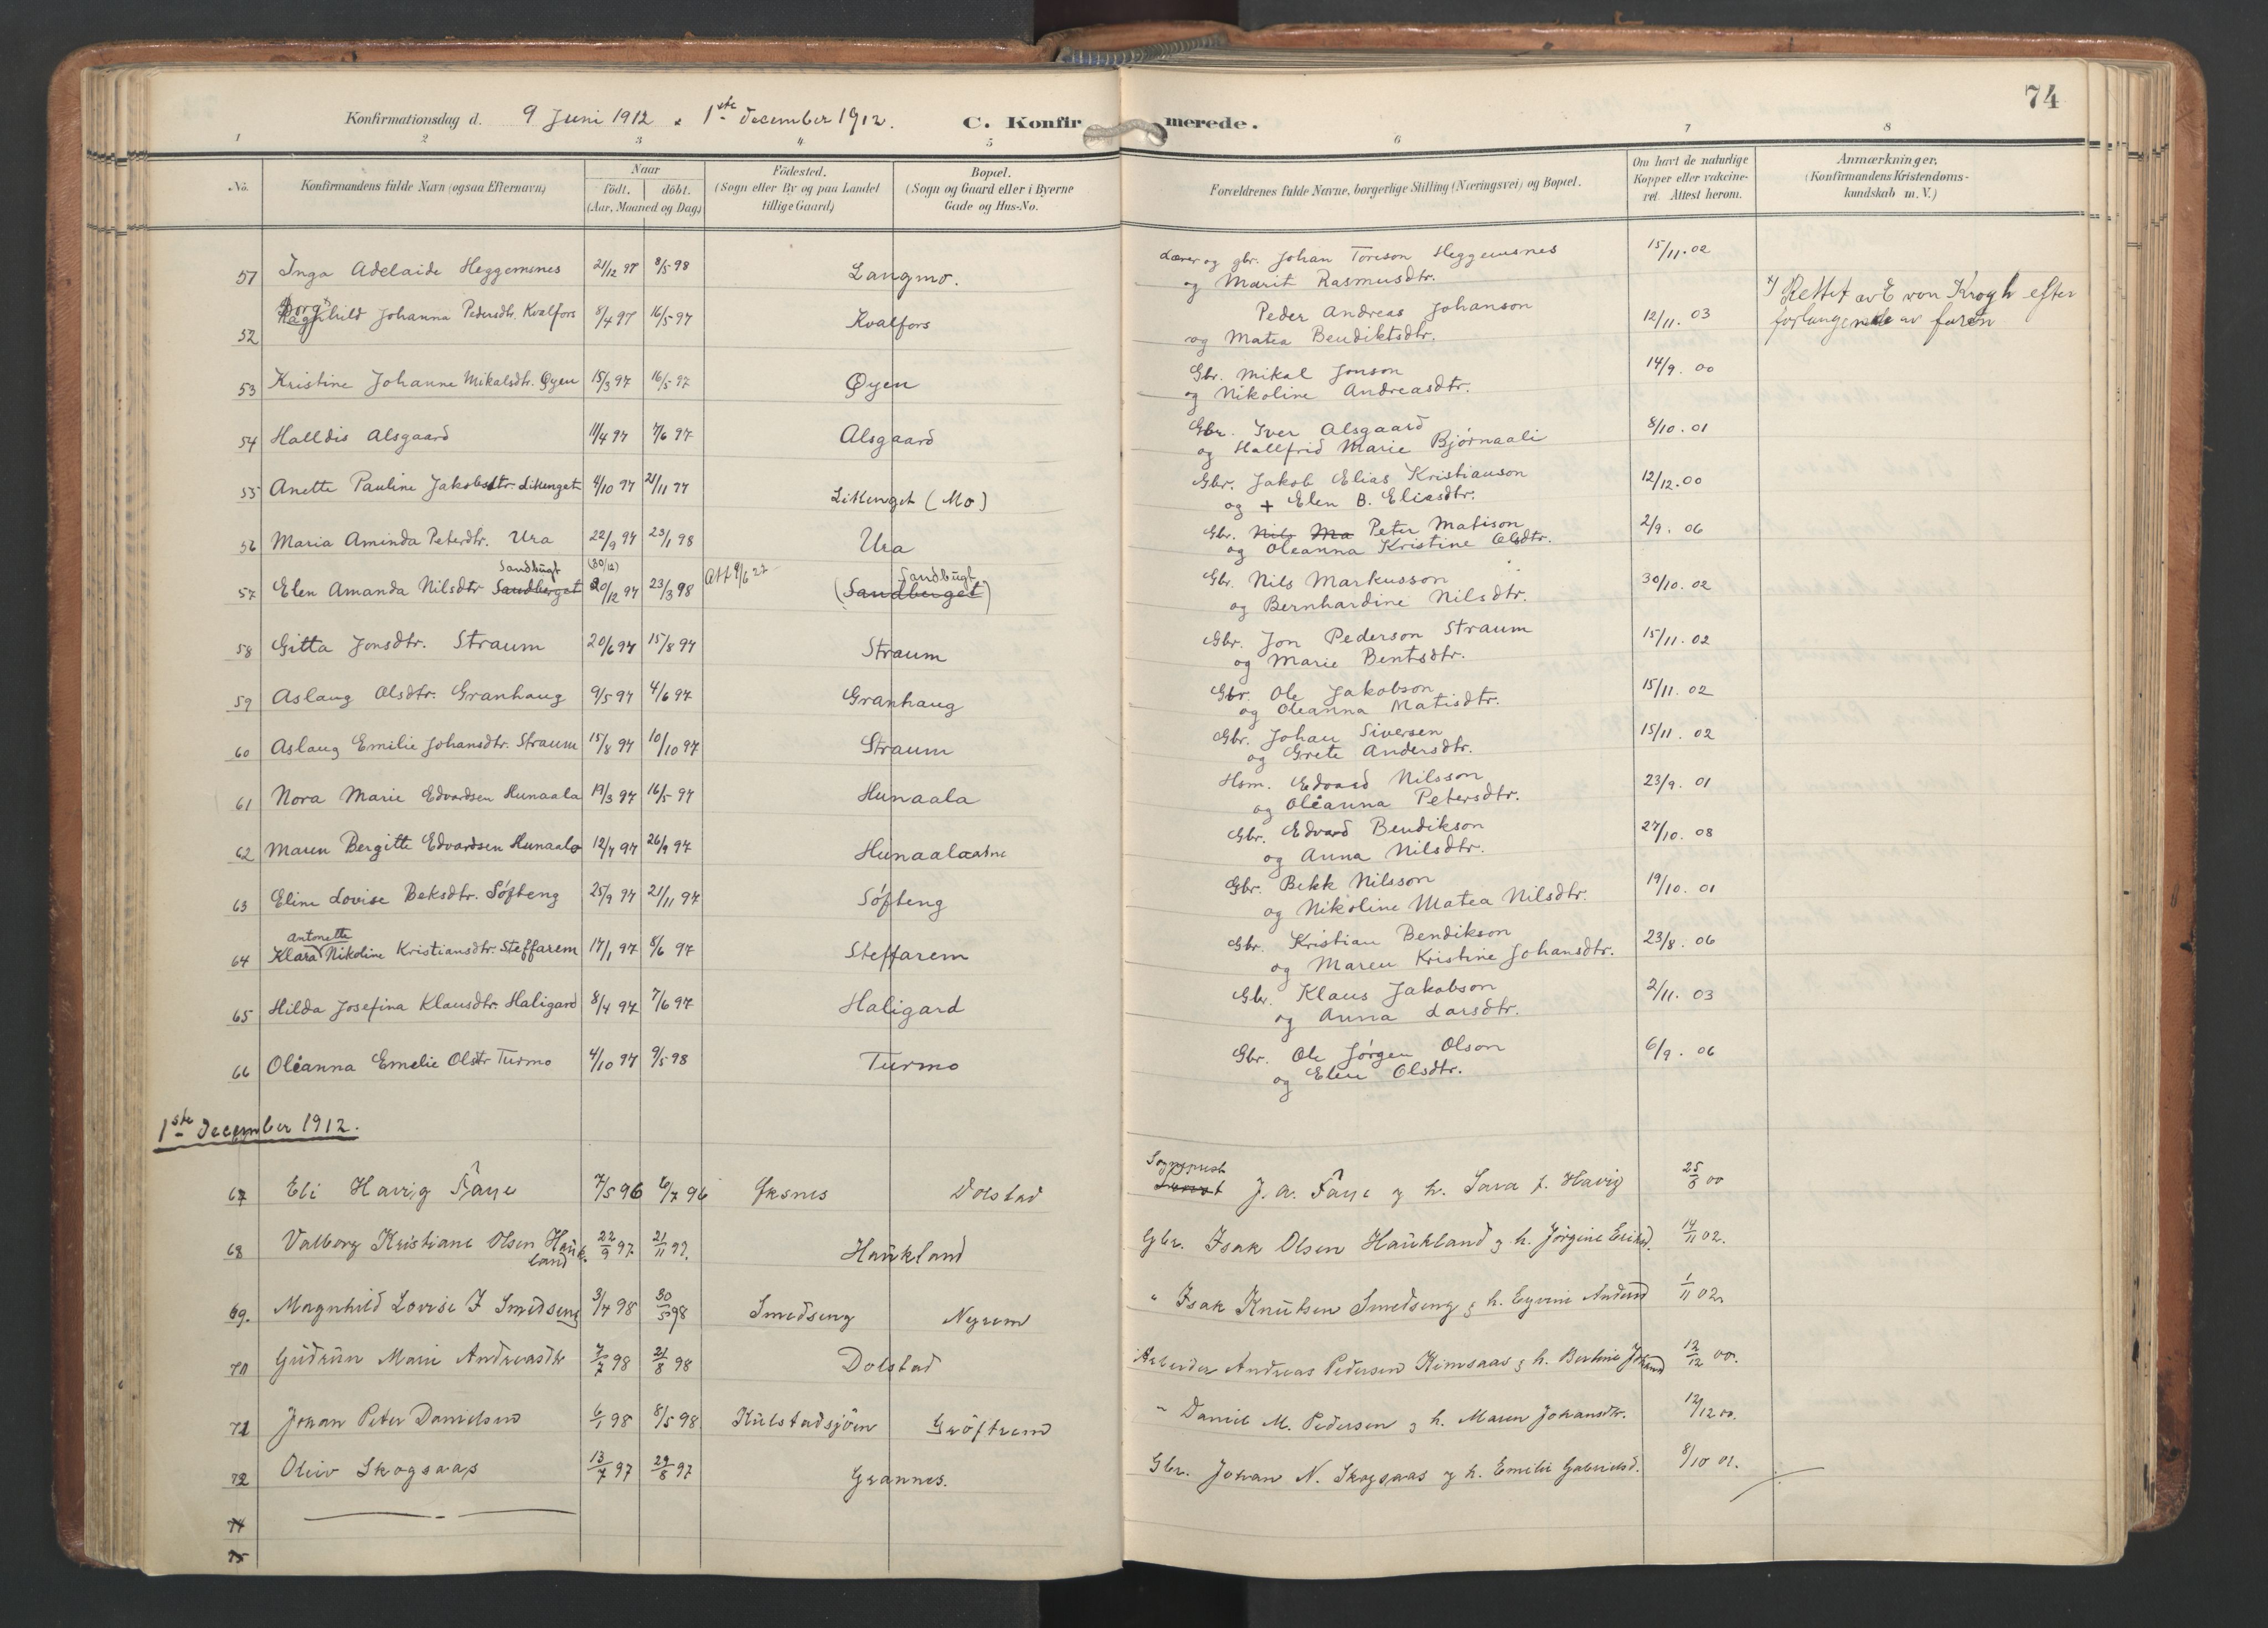 74
Konfirmationsdag d. 9 Juni 1912 & 1ste December 1912. C. Konfirmerede.
1 2 3 4 5 6 7 8
No. Konfirmandens fulde Navn (ogsaa Efternavn) Naar født. døbt. (Aar, Maaned og Dag) Födested. (Sogn eller By og paa Landet tillige Gaard) Bopæl. (Sogn og Gaard eller i Byerne Gade og Hus-No. Forældrenes fulde Navne, borgerlige Stilling (Næringsvei) og Bopæl. Om havt de naturlige Kopper eller vakcineret. Attest herom. Anmærkninger. (Konfirmandens Kristendomskundskab m. V.)
51 Inga Adelaide Heggemsnes 21/12 97 8/5 98 Langmo. Lærer og gbr. Johan Toreson Heggemsnes 15/11.02
og Marit Rasmusdtr.
52 Borghild Johanna Pedersdtr. Kvalfors 8/4 97 16/5 97 Kvalfors Peder Andreas Johanson 12/11. 03 x) Rettet av E von Krogh efter
og Matea Bendiktsdtr. forlangende av faren
53 Kristine Johanne Mikalsdtr. Øyen 15/3 97 16/5 97 Øyen Gbr. Mikal Jonson 14/9. 00
og Nikoline Andreasdtr.
54 Halldis Alsgaard 11/4 97 7/6 97 Alsgaard Gbr. Iver Alsgaard 8/10. 01
og Hallfrid Marie Bjørnaali
55 Anette Pauline Jakobsdtr. Litlenget 4/10 97 21/11 97 Litlenget (Mo) Gbr. Jakob Elias Kristianson 12/12.00
og + Elen B. Eliasdtr.
56 Maria Aminda Petersdtr. Ura 22/9 97 23/1 98 Ura Gbr. Nils Ma Peter Matison 2/9. 06
og Oleanna Kristine Olsdtr.
Sandbugt (30/12) Sandbugt
57 Elen Amanda Nilsdtr Sandberget 20/12 97 23/3 98 Att 9/6 27 (Sandberget) Gbr. Nils Markusson 30/10. 02
og Bernhardine Nilsdtr.
58 Gitta Jonsdtr. Straum 20/6 97 15/8 97 Straum Gbr. Jon Pederson Straum 15/11. 02
og Marie Bentsdtr.
59 Aslaug Olsdtr. Granhaug 9/5 97 4/6 97 Granhaug Gbr. Ole Jakobson 15/11. 02
og Oleanna Matisdtr.
60 Aslaug Emilie Johansdtr. Straum 15/8 97 10/10 97 Straum Gbr. Johan Siversen 15/11. 02
og Grete Andersdtr.
61 Nora Marie Edvardsen Hunaala 19/3 97 16/5 97 Hunaala Hsm. Edvard Nilsson 23/9. 01
og Oleanna Petersdtr.
62 Maren Bergitte Edvardsen Hunaala 12/7 97 26/9 97 Hunaala Gbr. Edvard Bendikson 27/10. 08
og Anna Nilsdtr.
63 Eline Lovise Beksdtr. Søfteng 25/9 97 21/11 97 Søfteng Gbr. Bekk Nilsson 19/10. 01
og Nikoline Matea Nilsdtr.
Antonette
64 Klara Nikoline Kristiansdtr. Steffarem 17/1 97 8/6 97 Steffarem Gbr. Kristian Bendikson 23/8. 06
og Maren Kristine Johansdtr.
65 Hilda Josefina Klausdtr. Haligard 8/4 97 7/6 97 Haligard Gbr. Klaus Jakobson 2/11. 03
og Anna Larsdtr.
66 Oleanna Emelie Olsdtr Turmo 4/10 97 9/5 98 Turmo Gbr. Ole Jørgen Olson 6/9. 06
og Elen Olsdtr.
1ste December 1912.
67 Eli Havig Faye 7/5 96 6/7 96 Øksnes Dolstad Sogneprest J. A. Faye og h. Sara f. Havig 25/8 00
68 Valborg Kristiane Olsen Haukland 22/9 97 21/11 97. Haukland Gbr. Isak Olsen Haukland og h. Jørgine Eriksd. 14/11 02.
69. Magnhild Lovise I Smedseng 3/4 98 30/5 98 Smedseng Nyrem " Isak Knutsen Smedseng og h. Andersd 1/11 02.
70 Gudrun Marie Andreasdtr 7/7 98 21/8 98 Dolstad Arbeider Andreas Pedersen Kimsaas og h. Bertine Johansd 12/12 00.
71 Johan Peter Danielsen 6/1 98 8/5 98 Kulstadsjöen Gröftrem " Daniel M. Pedersen og h. Maren Johansdtr. 12/12 00.
72 Oluv Skogsaas 13/7 97 29/8 97 Grannes. Gbr. Johan N. Skogsaas og h. Emilie Gabrielsd. 8/10 01.
74
75